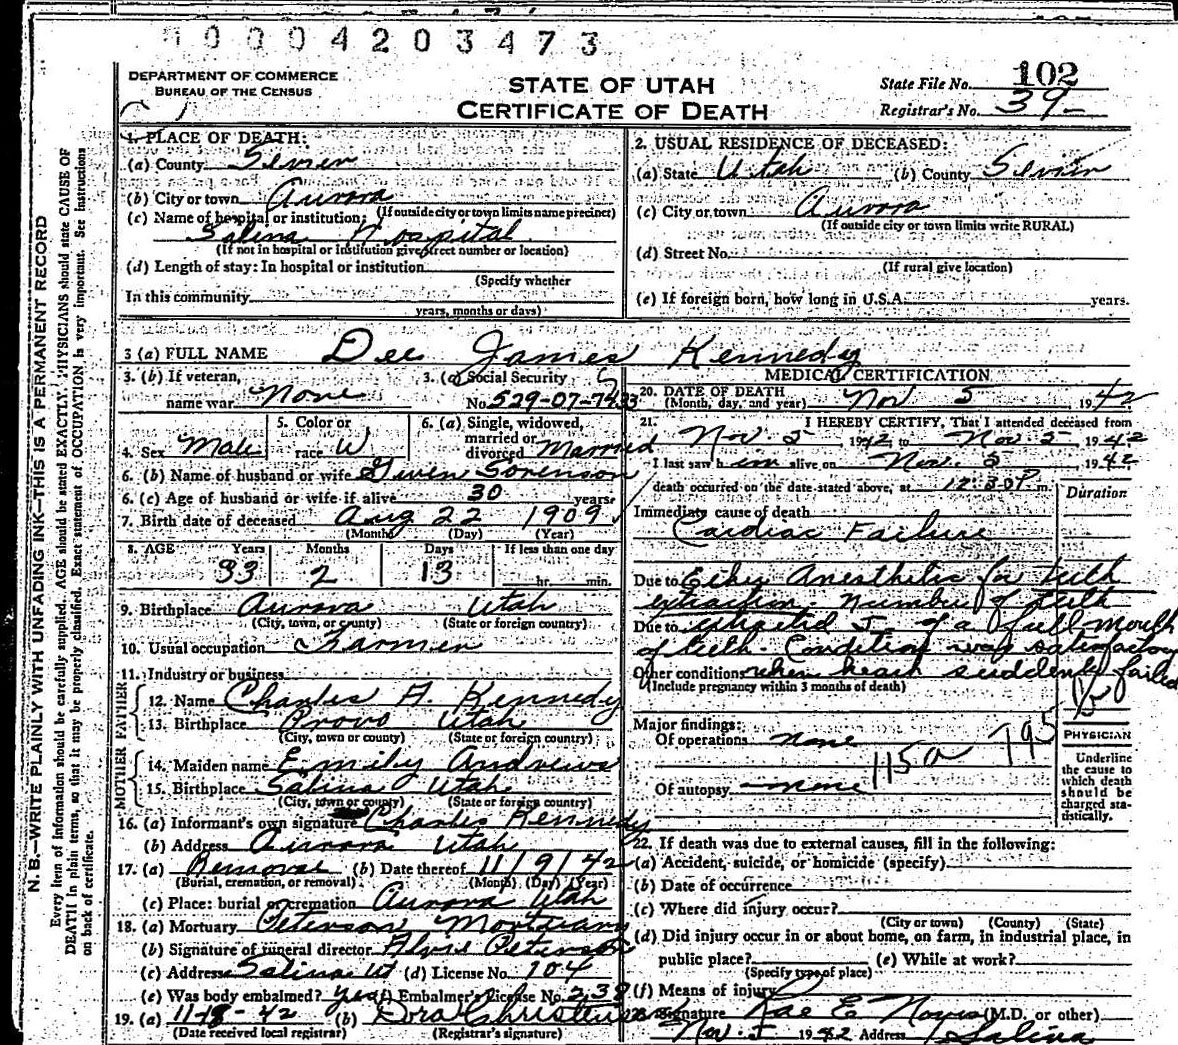 0004203473
DEPARTMENT OF COMMERCE
BUREAU OF THE CENSUS
STATE OF UTAH
CERTIFICATE OF DEATH
State File No. 102
Registrar's No. 39
N. B.—WRITE PLAINLY WITH UNFADING INK—THIS IS A PERMANENT RECORD
Every item of information should be carefully supplied. AGE should be stated EXACTLY. PHYSICIANS should state CAUSE OF
DEATH in plain terms, so that it may be properly classified. Exact statement of OCCUPATION is very important. See instructions
on back of certificate.
1. PLACE OF DEATH:
(a) County Sevier
(b) City or town Aurora
(If outside city or town limits name precinct)
(c) Name of hospital or institution:
Salina Hospital
(If not in hospital or institution give street number or location)
(d) Length of stay: In hospital or institution
(Specify whether
In this community
years, months or days)
2. USUAL RESIDENCE OF DECEASED:
(a) State Utah (b) County Sevier
(c) City or town Aurora
(If outside city or town limits write RURAL)
(d) Street No.
(If rural give location)
(e) If foreign born, how long in U.S.A. years.
3 (a) FULL NAME Dee James Kennedy
3. (b) If veteran, name war None
3. (c) Social Security No. 529-07-7433
4. Sex Male
5. Color or race W
6. (a) Single, widowed, married or divorced Married
6. (b) Name of husband or wife Gwen Sorenson
6. (c) Age of husband or wife if alive 30 years
7. Birth date of deceased Aug 22 1909
(Month) (Day) (Year)
8. AGE Years Months Days If less than one day
33 2 13 hr. min.
9. Birthplace Aurora Utah
(City, town, or county) (State or foreign country)
10. Usual occupation Farmer
11. Industry or business
FATHER
12. Name Charles A. Kennedy
13. Birthplace Provo Utah
(City, town or county) (State or foreign country)
MOTHER
14. Maiden name Emily Andrews
15. Birthplace Salina Utah
(City, town or county) (State or foreign country)
16. (a) Informant's own signature Charles Kennedy
(b) Address Aurora Utah
17. (a) Removal (b) Date thereof 11/9/42
(Burial, cremation, or removal) (Month) (Day) (Year)
(c) Place: burial or cremation Aurora Utah
18. (a) Mortuary Peterson Mortuary
(b) Signature of funeral director Alvie Peterson
(c) Address Salina Ut (d) License No. 104
(e) Was body embalmed? yes (f) Embalmer's License No. 238
19. (a) 11-18-42 (b) Dora Christensen
(Date received local registrar) (Registrar's signature)
MEDICAL CERTIFICATION
20. DATE OF DEATH
(Month, day, and year) Nov 5 1942
21. I HEREBY CERTIFY, That I attended deceased from
Nov. 5 1942 to Nov. 5 1942
I last saw him alive on Nov. 5, 1942
death occurred on the date stated above, at 12:30 P m.
Duration
Immediate cause of death
Cardiac Failure
Due to Ether Anesthetic for teeth
extraction. Number of teeth
Due to extracted of a full mouth
of teeth. Condition was satisfactory
Other conditions when heart suddenly failed
(Include pregnancy within 3 months of death)
Major findings:
Of operations none
115a 795
Of autopsy none
PHYSICIAN
Underline
the cause to
which death
should be
charged sta-
tistically.
22. If death was due to external causes, fill in the following:
(a) Accident, suicide, or homicide (specify)
(b) Date of occurrence
(c) Where did injury occur?
(City or town) (County) (State)
(d) Did injury occur in or about home, on farm, in industrial place, in
public place? (e) While at work?
(Specify type of place)
(f) Means of injury
23. Signature Rae E Noyes (M.D. or other)
Nov. 5 1942 Address Salina